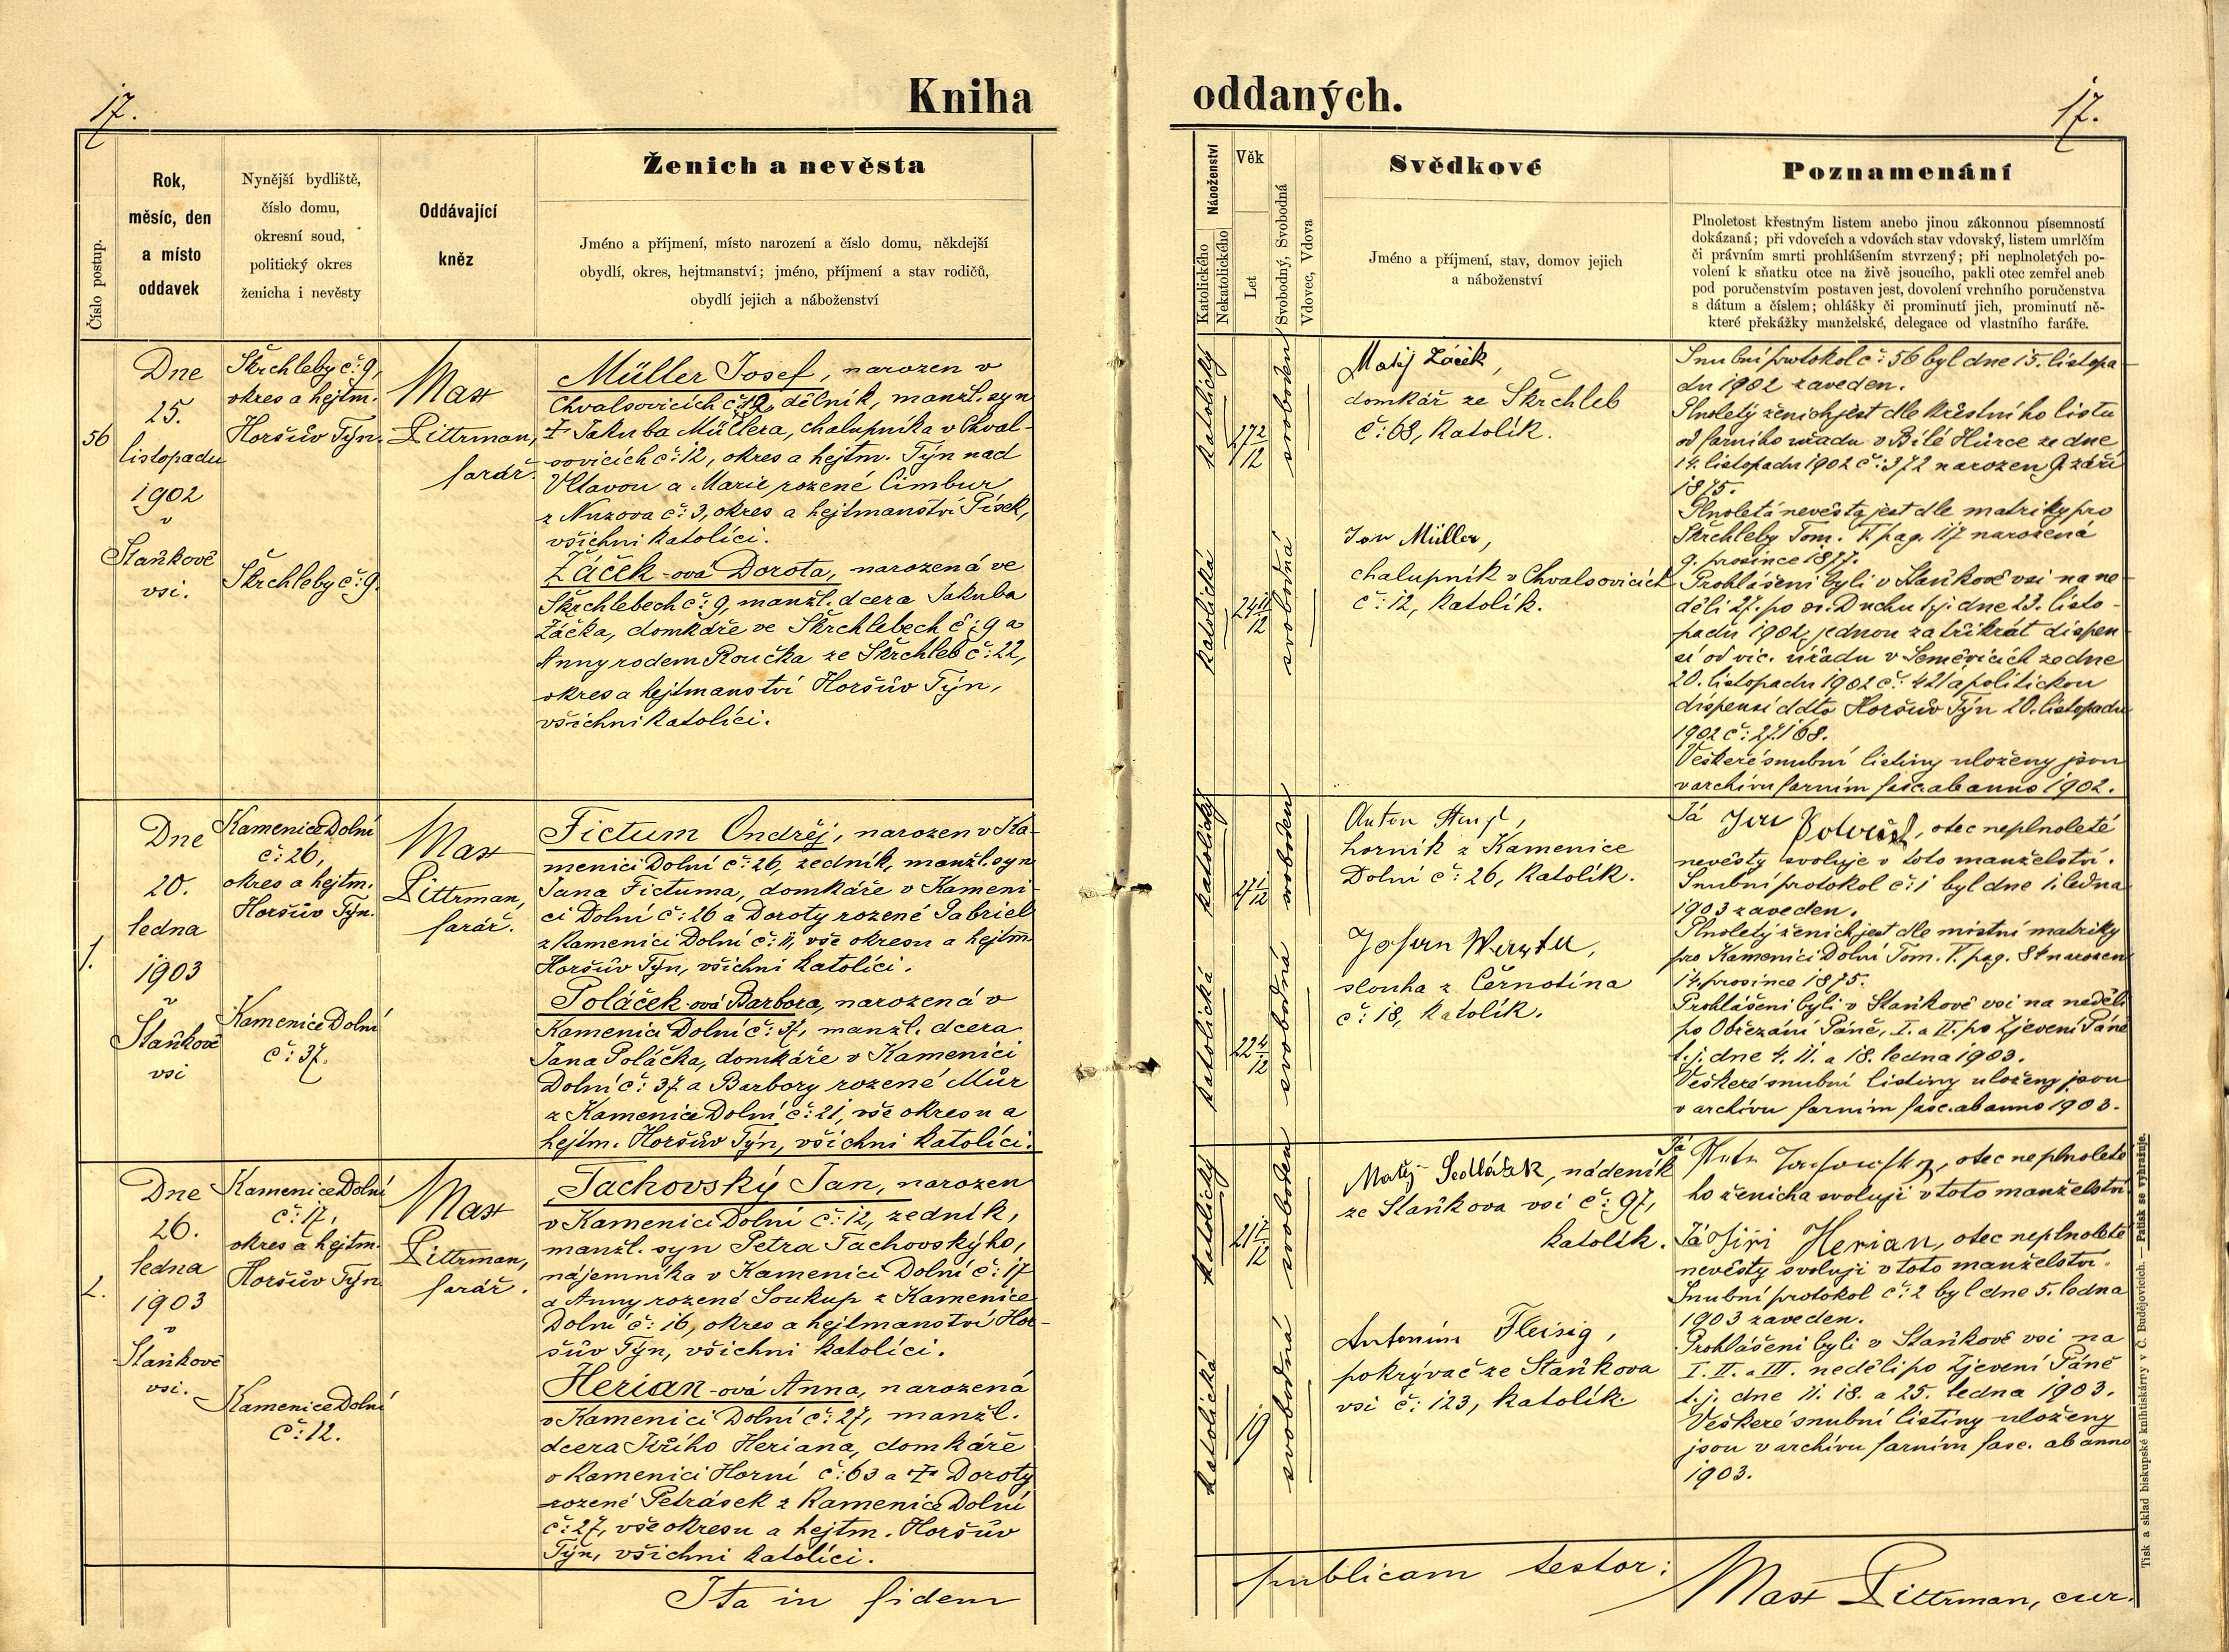 17.
Kniha
oddaných.
17.
Číslo postup.
Rok,
měsíc, den
a místo
oddavek
Nynější bydliště,
číslo domu,
okresní soud,
politický okres
ženicha i nevěsty
Oddávající
kněz
Ženich a nevěsta
Jméno a příjmení, místo narození a číslo domu, někdejší
obydlí, okres, hejtmanství; jméno, příjmení a stav rodičů,
obydlí jejich a náboženství
Náboženství
Katolického
Nekatolického
Věk
Let
Svobodný, Svobodná
Vdovec, Vdova
Svědkové
Jméno a příjmení, stav, domov jejich
a náboženství
Poznamenání
Plnoletost křestným listem anebo jinou zákonnou písemností
dokázaná; při vdovcích a vdovách stav vdovský, listem umrlčím
či právním smrti prohlášením stvrzený; při neplnoletých po-
volení k sňatku otce na živě jsoucího, pakli otec zemřel aneb
pod poručenstvím postaven jest, dovolení vrchního poručenstva
s dátum a číslem; ohlášky či prominutí jich, prominutí ně-
které překážky manželské, delegace od vlastního faráře.
56
Dne
25.
listopadu
1902
v
Staňkově
vsi.
Škrchleby č: 9,
okres a hejtm.
Horšův Týn.
Škrchleby č: 9.
Max
Pittrman,
farář.
Müller Josef, narozen v
Chvalšovicích č: 12, dělník, manžl. syn
† Jakuba Müllera, chalupníka v Chval-
šovicích č: 12, okres a hejtm. Týn nad
Vltavou a Marie rozené Cimbur
z Nuzova č: 3, okres a hejtmanství Písek,
všichni katolíci.
Žáček-ová Dorota, narozená ve
Škrchlebech č: 9, manžl. dcera Jakuba
Žáčka, domkáře ve Škrchlebech č: 9 a
Anny rodem Roučka ze Škrchleb č: 22,
okres a hejtmanství Horšův Týn,
všichni katolíci.
katolický
27 2/12
svoboden
katolická
24 11/12
svobodná
Matěj Žáček,
domkář ze Škrchleb
č: 63, katolík.
Jan Müller,
chalupník v Chvalšovicích
č: 12, katolík.
Snubní protokol č: 56 byl dne 15. listopa-
du 1902 zaveden.
Plnoletý ženich jest dle křestního listu
od farního úřadu v Bílé Hůrce ze dne
14. listopadu 1902 č: 372 narozen 9. září
1875.
Plnoletá nevěsta jest dle matriky pro
Škrchleby Tom. V. pag. 117 narozená
9. prosince 1877.
Prohlášeni byli v Staňkově vsi na ne-
děli 27. po sv. Duchu t.j. dne 23. listo-
padu 1902, jednou za třikrát dispen-
sí od vic. úřadu v Semněvicích ze dne
20. listopadu 1902 č: 421 a politickou
dispensí ddto Horšův Týn 20. listopadu
1902 č: 27168.
Veškeré snubní listiny uloženy jsou
v archívu farním fasc. ab anno 1902.
1.
Dne
20.
ledna
1903
v
Staňkově
vsi
Kamenice Dolní
č: 26,
okres a hejtm.
Horšův Týn.
Kamenice Dolní
č: 37.
Max
Pittrman,
farář.
Fictum Ondřej, narozen v Ka-
menici Dolní č: 26, zedník, manžl. syn
Jana Fictuma, domkáře v Kameni-
ci Dolní č: 26 a Doroty rozené Gabriel
z Kamenici Dolní č: 11, vše okresu a hejtm.
Horšův Týn, všichni katolíci.
Poláček-ová Barbora, narozená v
Kamenici Dolní č: 37, manžl. dcera
Jana Poláčka, domkáře v Kamenici
Dolní č: 37 a Barbory rozené Můr
z Kamenice Dolní č: 21, vše okresu a
hejtm. Horšův Týn, všichni katolíci.
katolický
27 1/12
svoboden
katolická
22 4/12
svobodná
Anton
horník z Kamenice
Dolní č: 26, katolík.
Johann
slouha z Černotína
č: 18, katolík.
Já Jan, otec neplnoleté
nevěsty svoluje v toto manželství.
Snubní protokol č: 1 byl dne 1. ledna
1903 zaveden.
Plnoletý ženich jest dle místní matriky
pro Kamenici Dolní Tom. V. pag. 84 narozen
14. prosince 1875.
Prohlášeni byli v Staňkově vsi na neděli
po Obřezání Páně, I. a II. po Zjevení Páně
t.j. dne 4. 11. a 18. ledna 1903.
Veškeré snubní listiny uloženy jsou
v archívu farním fasc. ab anno 1903.
2.
Dne
26.
ledna
1903
v
Staňkově
vsi.
Kamenice Dolní
č: 17,
okres a hejtm.
Horšův Týn
Kamenice Dolní
č: 12.
Max
Pittrman,
farář.
Tachovský Jan, narozen
v Kamenici Dolní č: 12, zedník,
manžl. syn Petra Tachovského,
nájemníka v Kamenici Dolní č: 17
a Anny rozené Soukup z Kamenice
Dolní č: 16, okres a hejtmanství Hor-
šův Týn, všichni katolíci.
Herian-ová Anna, narozená
v Kamenici Dolní č: 27, manžl.
dcera Jiřího Heriana, domkáře
v Kamenici Horní č: 63 a † Doroty
rozené Petrásek z Kamenice Dolní
č: 27, vše okresu a hejtm. Horšův
Týn, všichni katolíci.
katolický
svoboden
katolická
19
svobodná
Matěj Sedláček, nádeník
ze Staňkova vsi č: 97,
katolík.
Antonín Fleisig,
pokrývač ze Staňkova
vsi č: 123, katolík.
Já, otec neplnoleté
ho ženicha svoluji v toto manželství.
Já Jiří Herian, otec neplnoleté
nevěsty svoluji v toto manželství.
Snubní protokol č: 2 byl dne 5. ledna
1903 zaveden.
Prohlášeni byli v Staňkově vsi na
I. II. a III. neděli po Zjevení Páně
t.j. dne 11. 18. a 25. ledna 1903.
Veškeré snubní listiny uloženy
jsou v archívu farním fasc. ab anno
1903.
Ita in fidem
publicam testor:
Max Pittrman, cur.
Tisk a sklad biskupské knihtiskárny v Č. Budějovicích. — Patisk se vyhražuje.